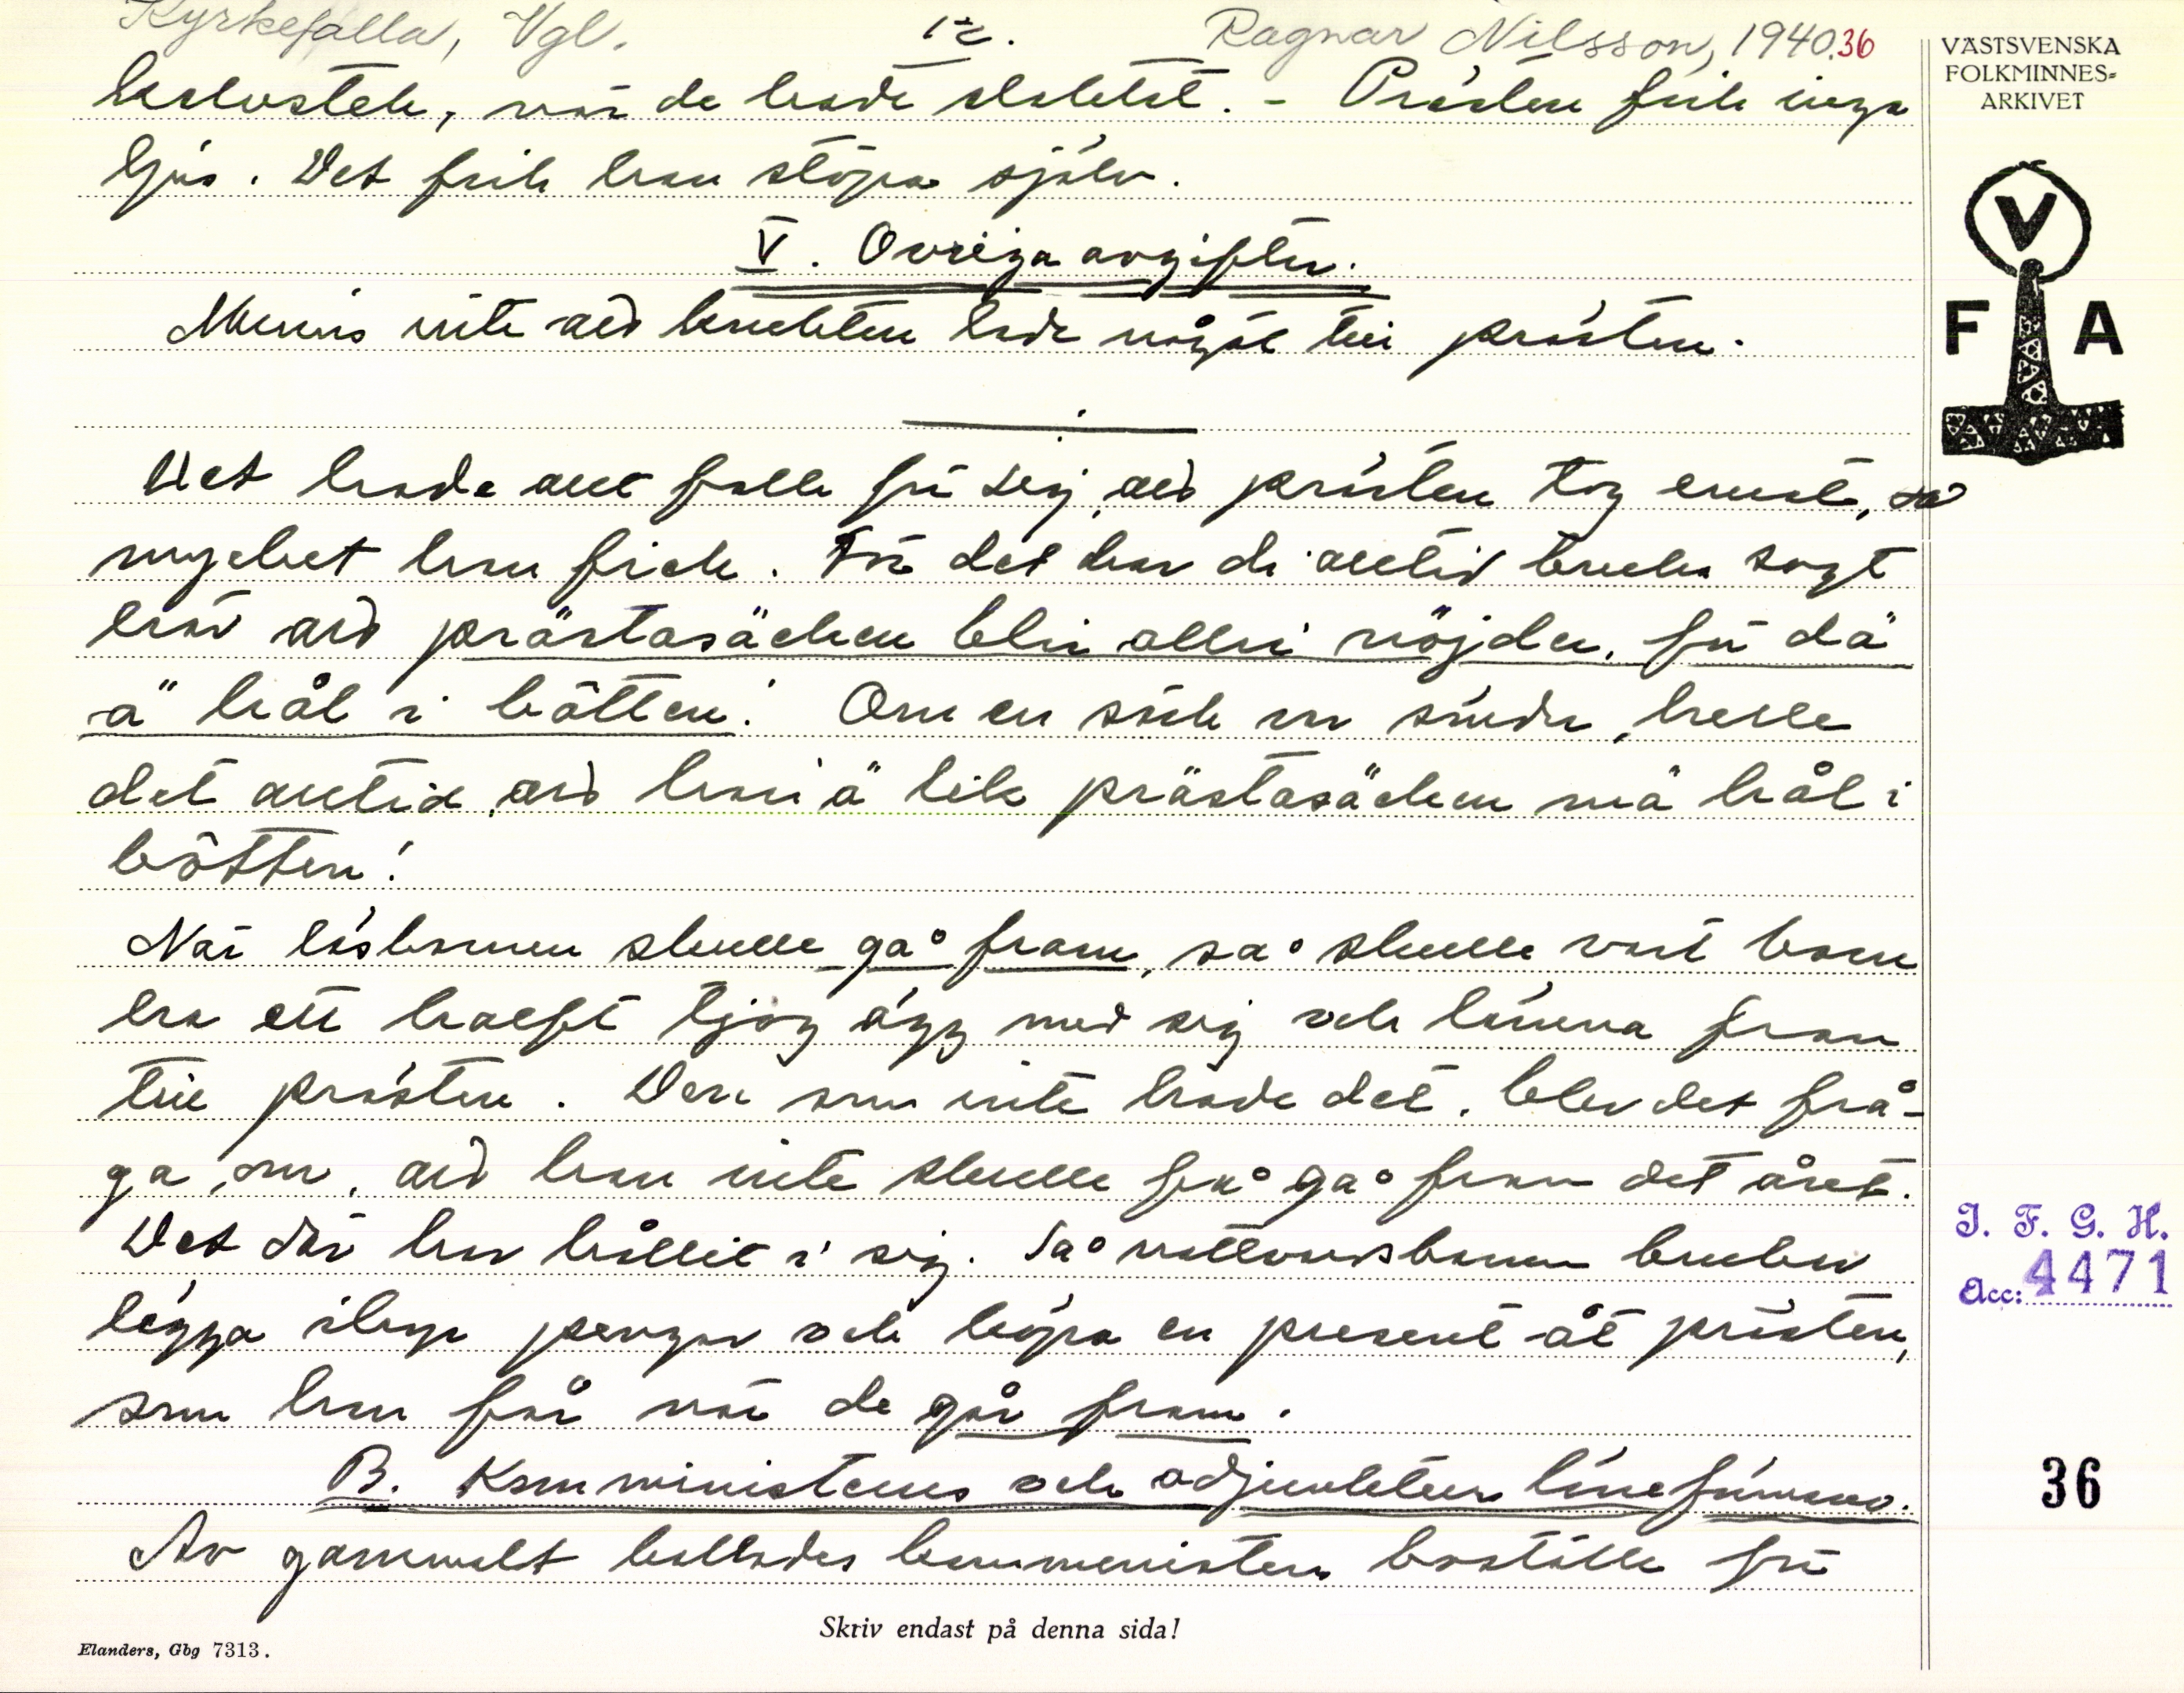 Kyrkefalla, Vgl. 12. Ragnar Nilsson, 1940. 36
VÄSTSVENSKA
FOLKMINNES=
ARKIVET
V
F A
när de hade slaktat. - Prästen fick inga
ljus. Det fick han stöpa själv.
V. Övriga avgifter.
Minns inte att brukten lade något till prästen.
Det hade allt folk för sig, att prästen tog emot, så
mycket han fick. För det har di alltid bruka sagt
här att prästasäcken blir aller nöjder, för dä
ä hål i båtten! Om en säck var sönder, hette
det alltid, att han ä lik prästasäcken mä hål i
båtten!
När läsbarnen skulle gå fram, så skulle vart barn
ha ett halft tjog ägg med sig och lämna fram
till prästen. Den som inte hade det, blev det frå-
ga om, att han inte skulle få gå fram det året.
Det där har hållit i sig. Så nattvardsbarnen brukar
lägga ihop pengar och köpa en present åt prästen,
som han får när de går fram.
B. Komministerns och adjunktens löneförmåner.
Av gammalt kallades komministerns boställe för
I. F. G. H.
Acc: 4471
36
Skriv endast på denna sida!
Elanders, Gbg 7313.